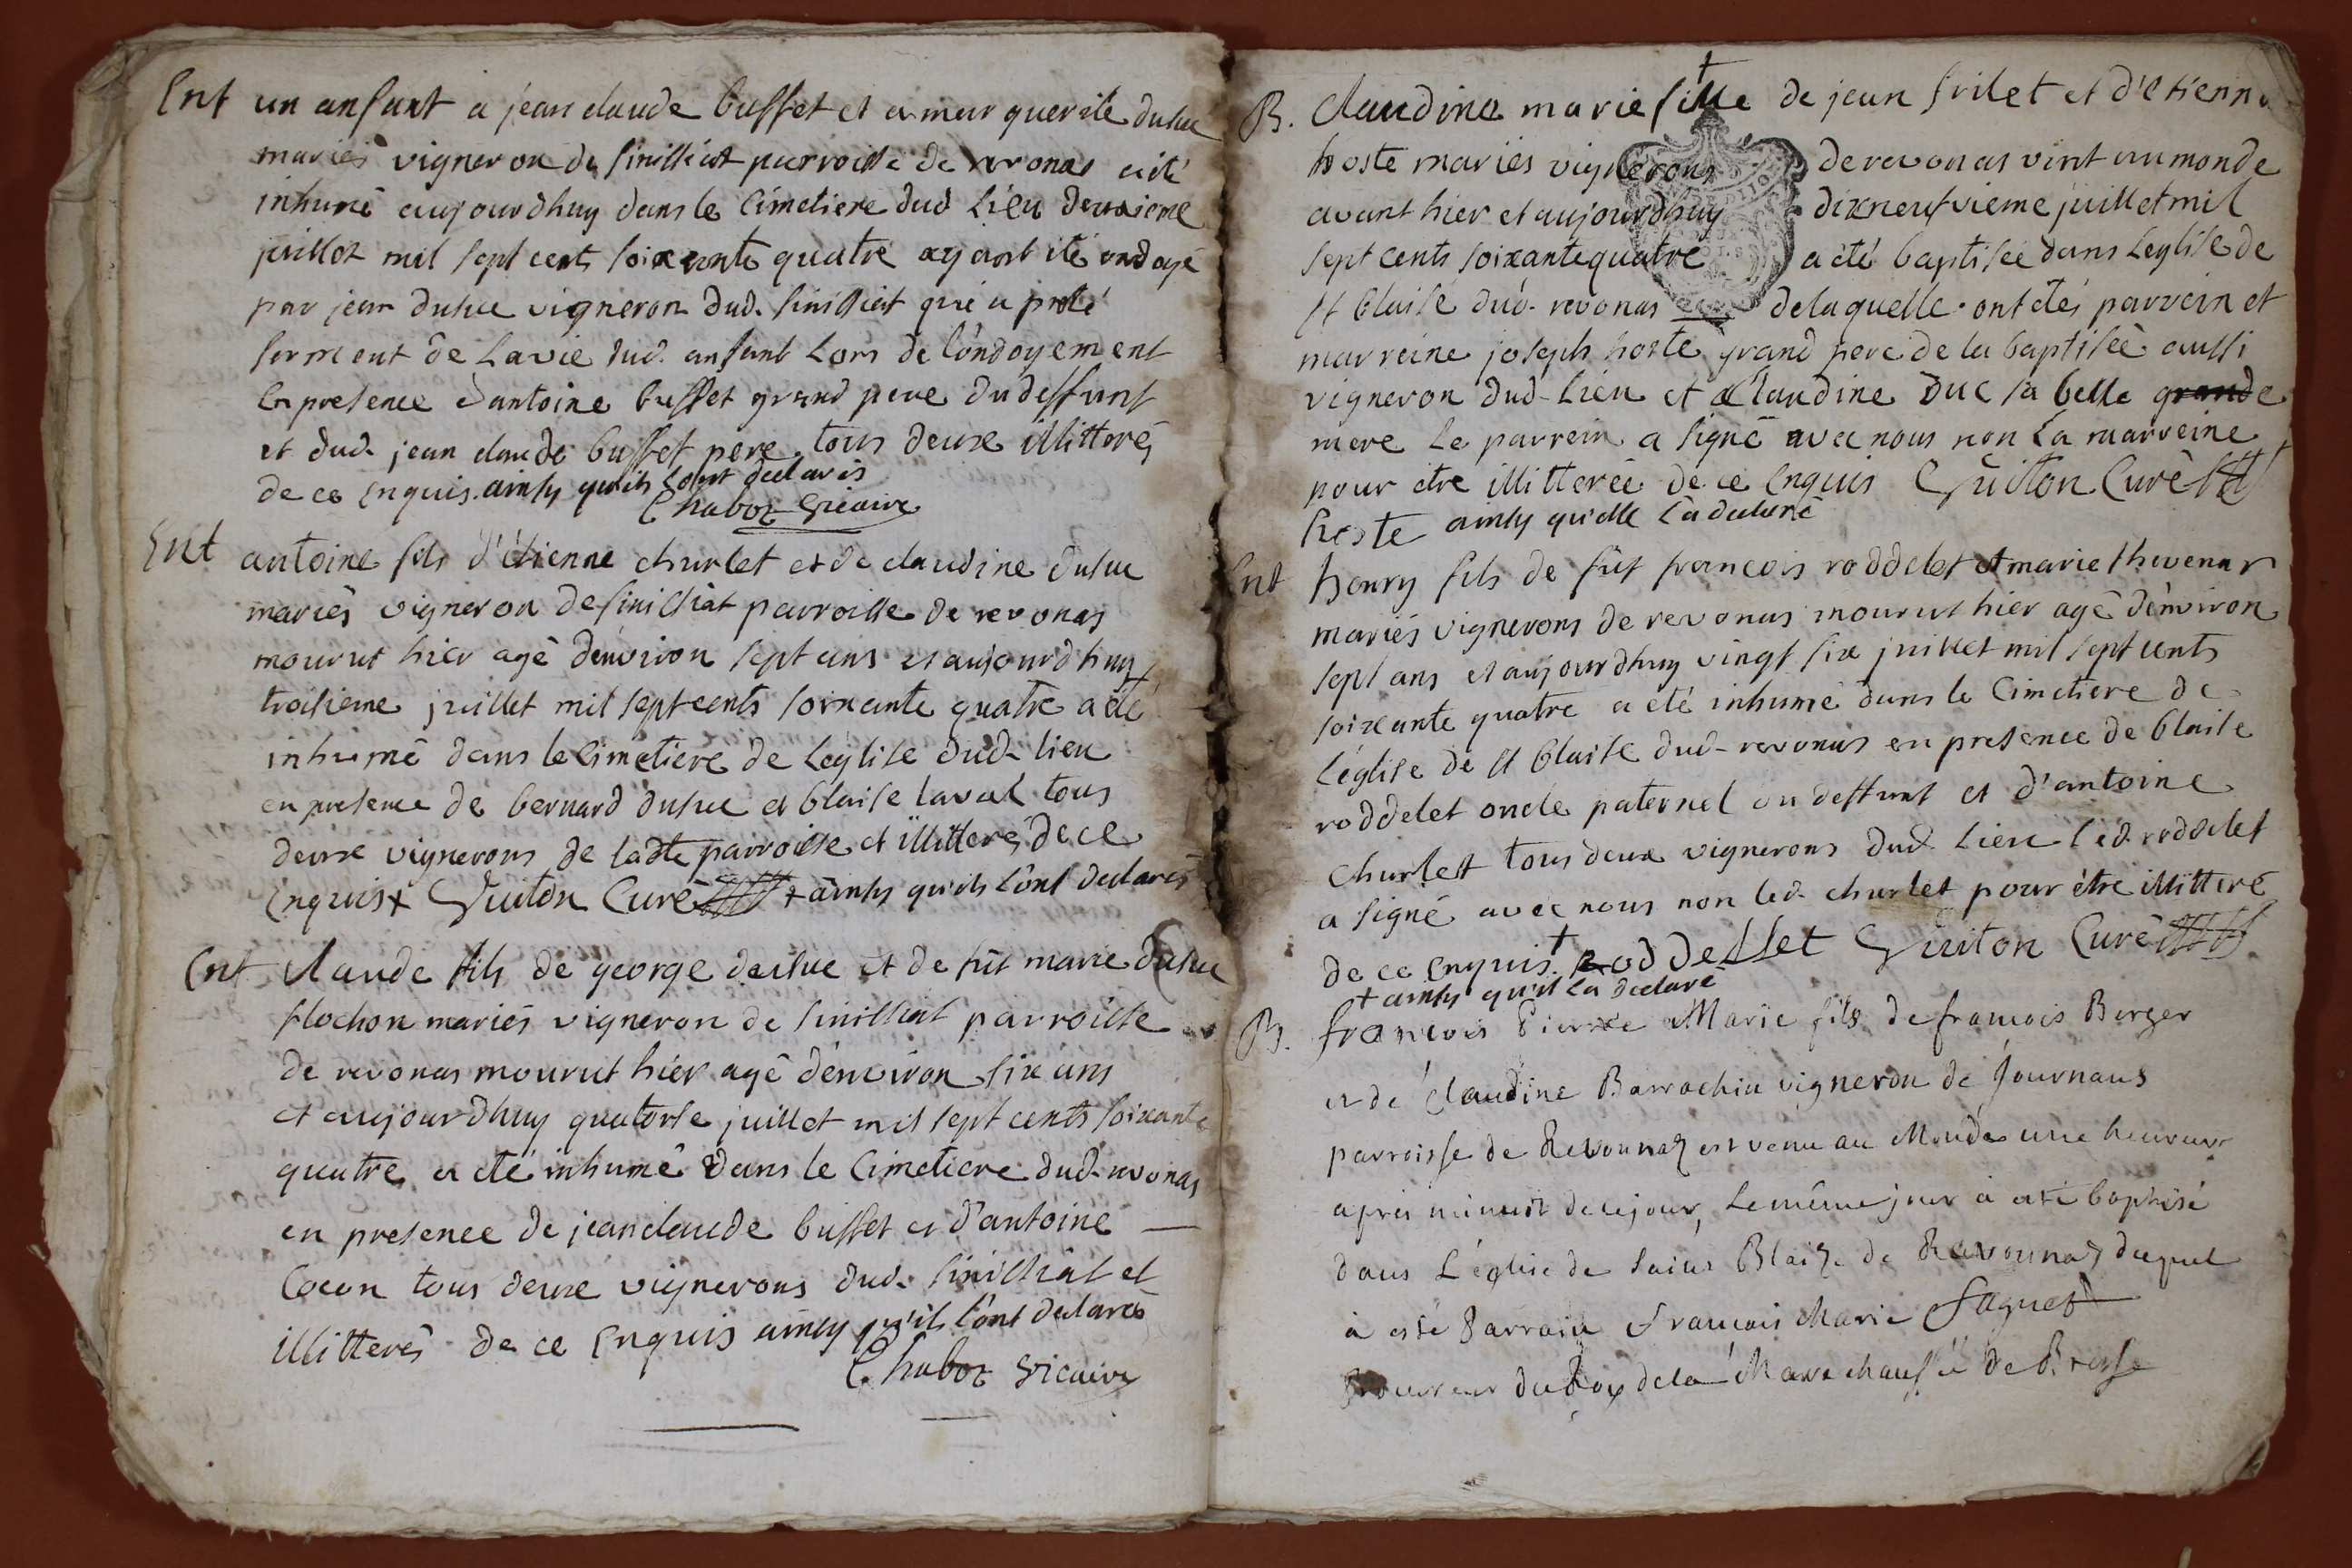 Ent un anfant a jean claude buffet et a marguerite dusuc
mariés vigneron de sinilliat parroisse de revonas a été
inhumé aujourdhuy dans le Cimetiere dud Lieu deuxieme
juillet mil sept cents soixante quatre ayant été ondoyé
par jean dusuc vigneron dud. sinilliat qui a preté
serment de La vie dud. anfant Lors de L'ondoyement
En presence d'antoine buffet grand pere du deffunt
et dud. jean claude buffet pere tous deux illitterés
de ce Enquis. ainsy qu'ils L'ont declarés
Chaboz Vicaire
Ent antoine fils d'étienne churlet et de claudine dusuc
mariés vigneron de sinilliat parroisse de revonas
mourut hier agé d'environ sept ans et aujourdhuy
troisieme juillet mil sept cents soixante quatre a été
inhumé dans le Cimetiere de Leglise dud. lieu
en presence de bernard dusuc et blaise laval tous
deux vignerons de ladte parroisse et illitterés de ce
Enquis + Guiton Curé + ainsy qu'ils L'ont declarés
Ent Claude fils de george dusuc et de fut marie
flochon mariés vigneron de sinilliat parroisse
de revonas mourut hier agé d'environ six ans
et aujourdhuy quatorse juillet mil sept cents soixante
quatre a été inhumé dans le Cimetiere dud. revonas
en presence de jean claude buffet et d'antoine
Cocon tous deux vignerons dud. sinilliat et
illitterés de ce Enquis ainsy qu'ils L'ont declarés
Chaboz Vicaire
B. Claudine marie fille de jean frilet et d'etienne
hoste mariés vignerons de revonas vint au monde
avant hier et aujourdhuy dixneufvieme juillet mil
sept cents soixante quatre a été baptisée dans Leglise de
st blaise dud. revonas de laquelle ont étés parrein et
marreine joseph hoste grand pere de la baptisée aussi
vigneron dud. Lieu et Claudine Duc sa belle grande
mere Le parrein a signé avec nous non La marreine
pour etre illitterée de ce Enquis Guiton Curé
hoste ainsy qu'elle L'a declaré
Ent henry fils de fut francois roddelet et marie thevenar
mariés vignerons de revonas mourut hier agé d'environ
sept ans et aujourdhuy vingt six juillet mil sept cents
soixante quatre a été inhumé dans le Cimetiere de
L'église de st blaise dud. revonas en presence de blaise
roddelet oncle paternel du deffunt et d'antoine
Churlet tous deux vignerons dud. Lieu Led. roddelet
a signé avec nous non led. churlet pour être illitteré
de ce Enquis + roddellet Guiton Curé
+ ainsy qu'il L'a declaré
B. francois Pierre Marie fils de francois Berger
et de Claudine Barrachin vigneron de Journans
parroisse de Revonnaz est venu au Monde une heure
apres minuit de ce jour, le même jour à été baptisé
dans L'église de Saint Blaize de Revonnaz duquel
à esté Parrain Francois Marie Faguet
Procureur du Roy de la Marechaussée de Bresse